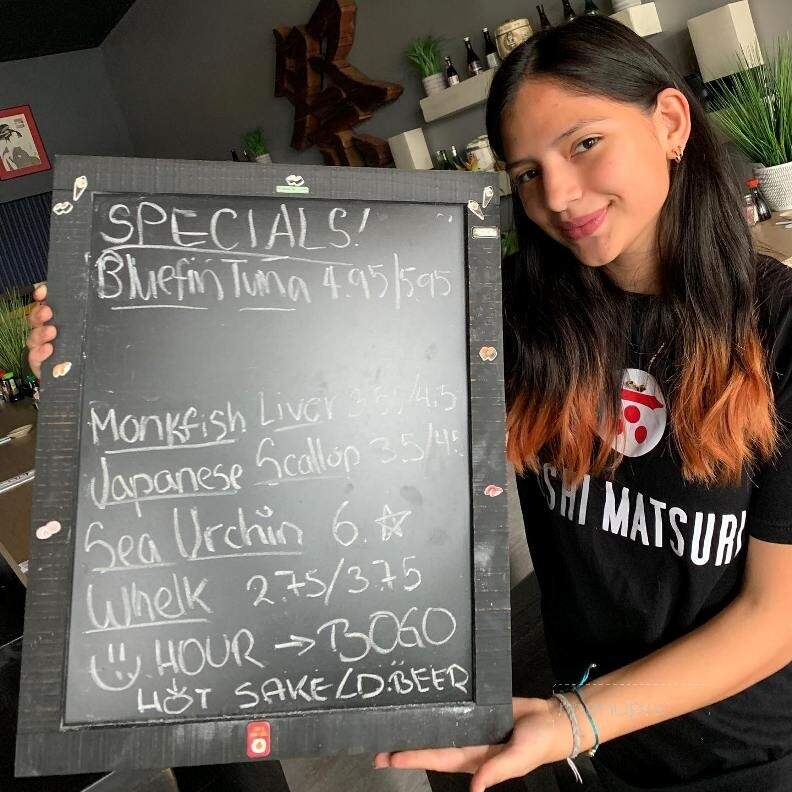 SPECIALS!
Bluefin Tuna 4.95/5.95
Monkfish Liver 3.5/4.5
Japanese Scallop 3.5/4.5
Sea Urchin 6.
Whelk 2.75/3.75
HOUR → BOGO
HOT SAKE/D.BEER
SHI MATSURI